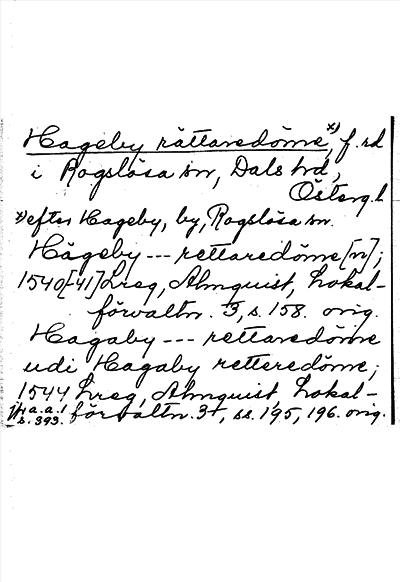 Hageby rättaredöme, x) f. rd
i Rogslösa sn, Dals hd,
Österg. l
x) efter Hageby, by, Rogslösa sn.
Hägeby --- rettaredöme [m];
1540[-41] Lreg, Almquist, Lokal-
förvaltn. 3, s. 158. orig.
Hagaby --- rettaredöme
udi Hagaby retteredöme;
1544 Lreg, Almquist, Lokal-
jfr a.a. 1 s. 393. förvaltn. 3, ss. 195, 196. orig.